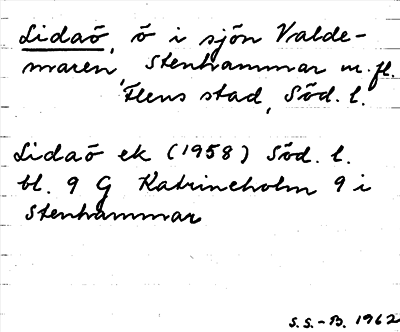 Lidaö, ö i sjön Valde-
maren, Stenhammar m. fl.
Flens stad, Söd. l.
Lidaö ek (1958) Söd. l.
bl. 9 G Katrineholm 9 i
Stenhammar
S.S.-B. 1962